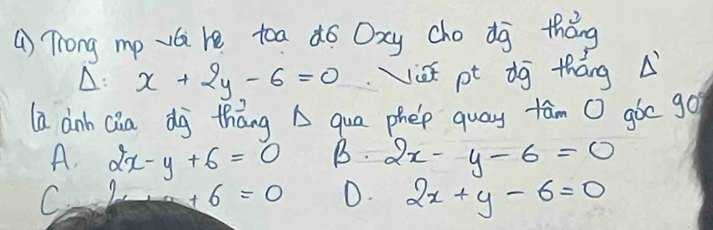 4) Trong mp với hệ toạ độ Oxy cho đg thẳng
Δ: x + 2y - 6 = 0. Viết pt đg thẳng Δ'
là ảnh của đg thẳng Δ qua phép quay tâm O góc 90°
A. 2x - y + 6 = 0 B. 2x - y - 6 = 0
C. + 6 = 0 D. 2x + y - 6 = 0